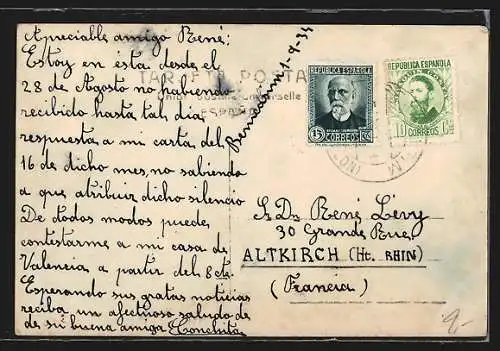 Apreciable amigo René:
Estoy en esta desde el
28 de Agosto no habiendo
recibido hasta tal dia
respuesta a mi carta del
16 de dicho mes, no sabiendo
a que atribuir dicho silencio
De todos modos puede
contestarme a mi casa de
Valencia a partir del 8 cte.
Esperando sus gratas noticias
reciba un afectuoso saludo de
de su buena amiga Conchita
TARJETA POSTAL
Union Postale Universelle
ESPAÑA
Benicasim 1-9-34
REPUBLICA ESPAÑOLA
15 CORREOS Cts
REPUBLICA ESPAÑOLA
JOAQUIN COSTA
10 CORREOS Cts
S. D. René Lévy
30 Grande Rue
ALTKIRCH (Ht. RHIN)
(Francia)